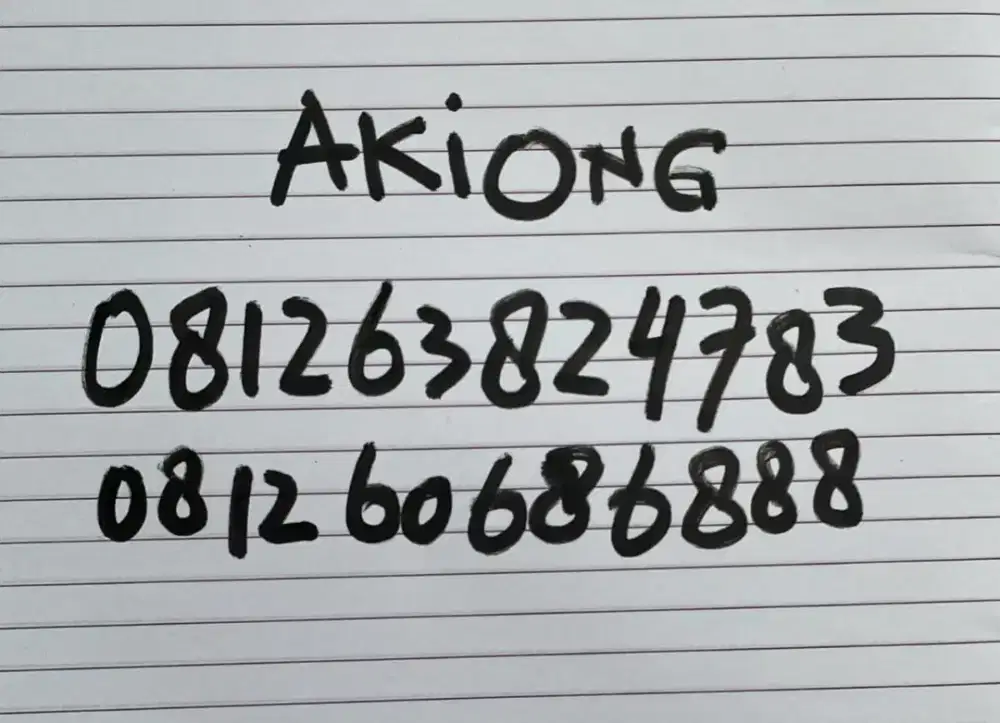 AKiONG
081263824783
0812 60686888